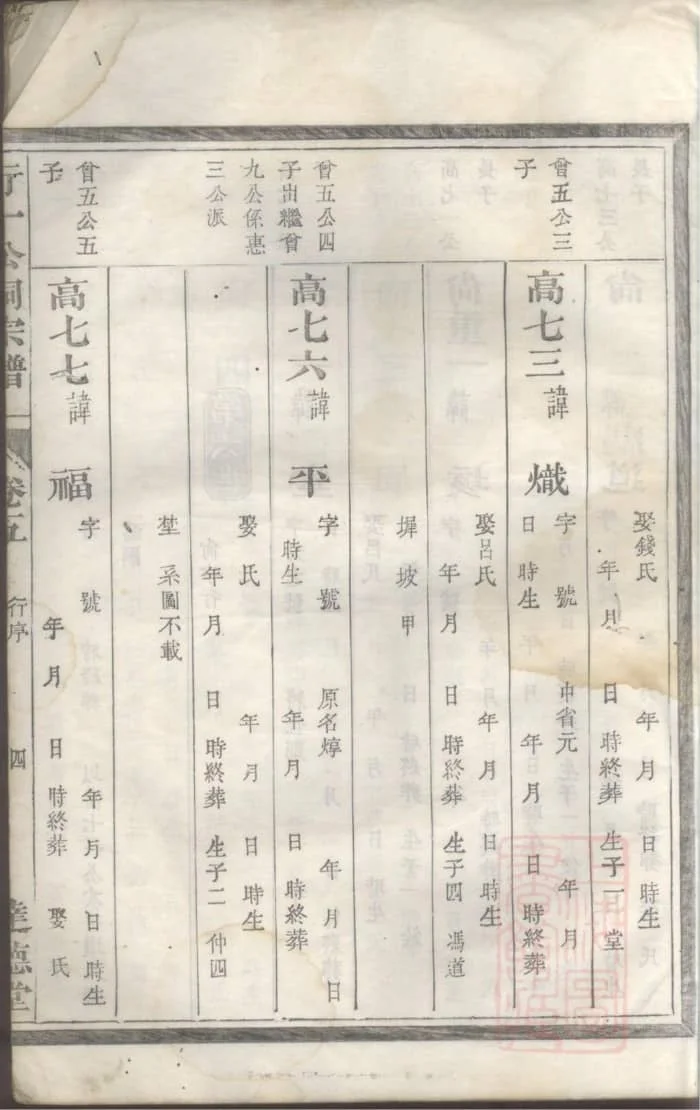 娶錢氏 年 月 日 時生
年 月 日 時終葬 生子一 堂
曾五公三
子
高七三 諱 熾
字 號 中省元 年 月
日 時生 年 月 日 時終葬
娶呂氏 年 月 日 時生
年 月 日 時終葬 生子四 馮道
墀 坡 甲
曾五公四
子出繼曾
九公係惠
三公派
高七六 諱 平
字 號 原名焞 年 月 日
時生 年 月 日 時終葬
娶 氏 年 月 日 時生
年 月 日 時終葬 生子二 仲四
埜 系圖不載
曾五公五
子
高七七 諱 福
字 號 年 月 日 時生
年 月 日 時終葬 娶 氏
行一公祠宗譜
卷五
行序
四
達德堂